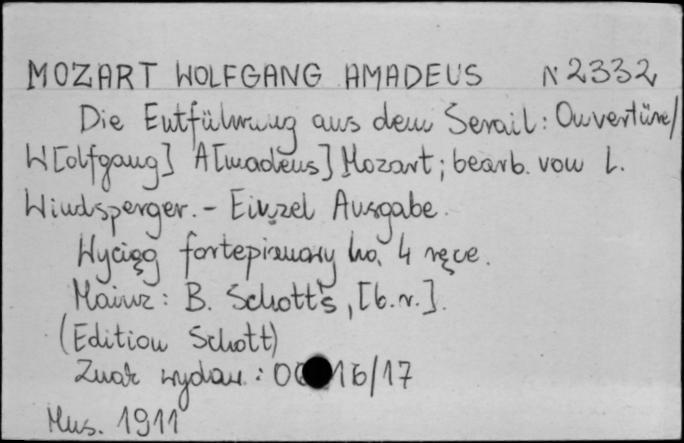 MOZART WOLFGANG AMADEUS N 2332
Die Entführung aus dem Serail: Ouvertüre/
W[olfgang] A[madeus] Mozart; bearb. von L.
Windsperger. - Einzel Ausgabe.
Wyciąg fortepianowy na 4 ręce.
Mainz: B. Schott's, [b.r.].
(Edition Schott)
Znak wydaw.: 16/17
Mus. 1911